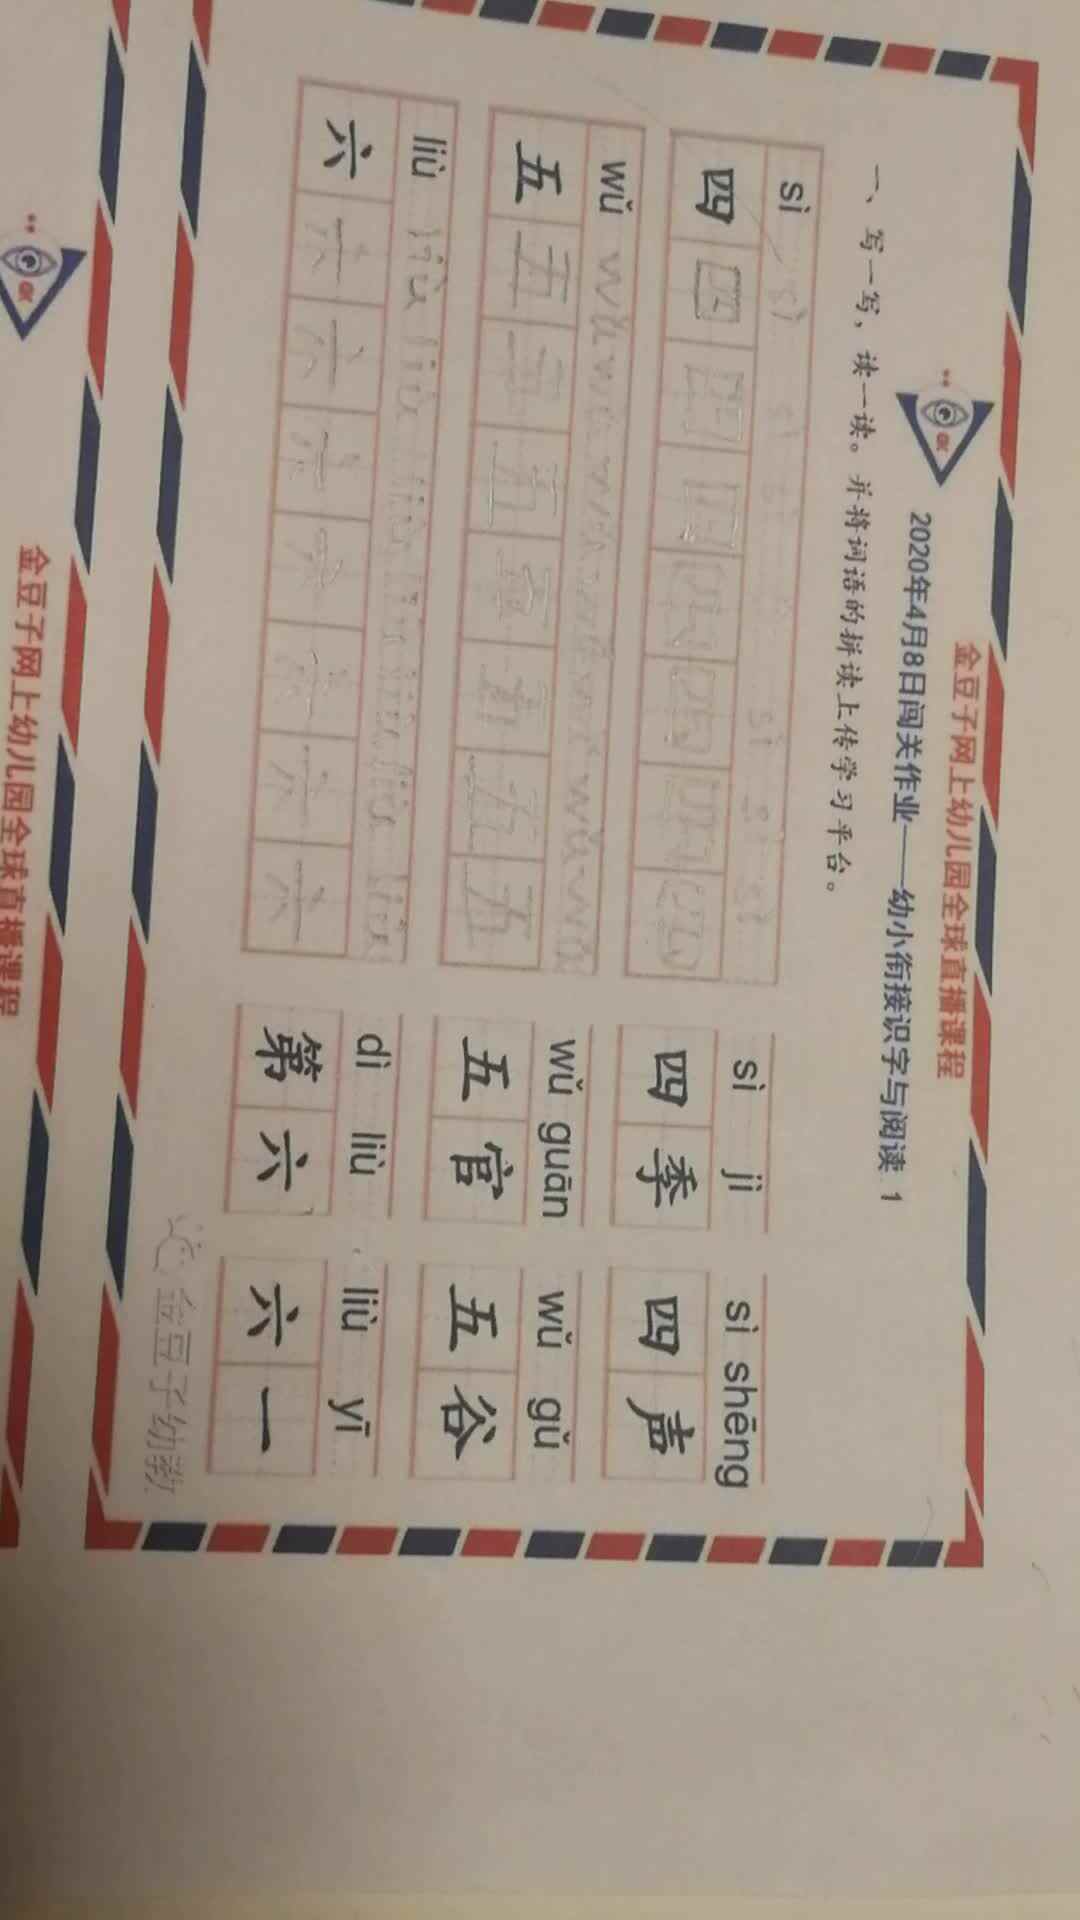 金豆子网上幼儿园全球直播课程
2020年4月8日闯关作业——幼小衔接识字与阅读 1
一、写一写，读一读。并将词语的拼读上传学习平台。
sì sì sì sì sì sì sì sì jì sì shēng
四 四 四 四 四 四 四 四 四季 四声
wǔ wǔ wǔ wǔ wǔ wǔ wǔ wǔ wǔ guān wǔ gǔ
五 五 五 五 五 五 五 五 五官 五谷
liù liù liù liù liù liù liù liù dì liù liù yī
六 六 六 六 六 六 六 六 第六 六一
金豆子幼教
金豆子网上幼儿园全球直播课程